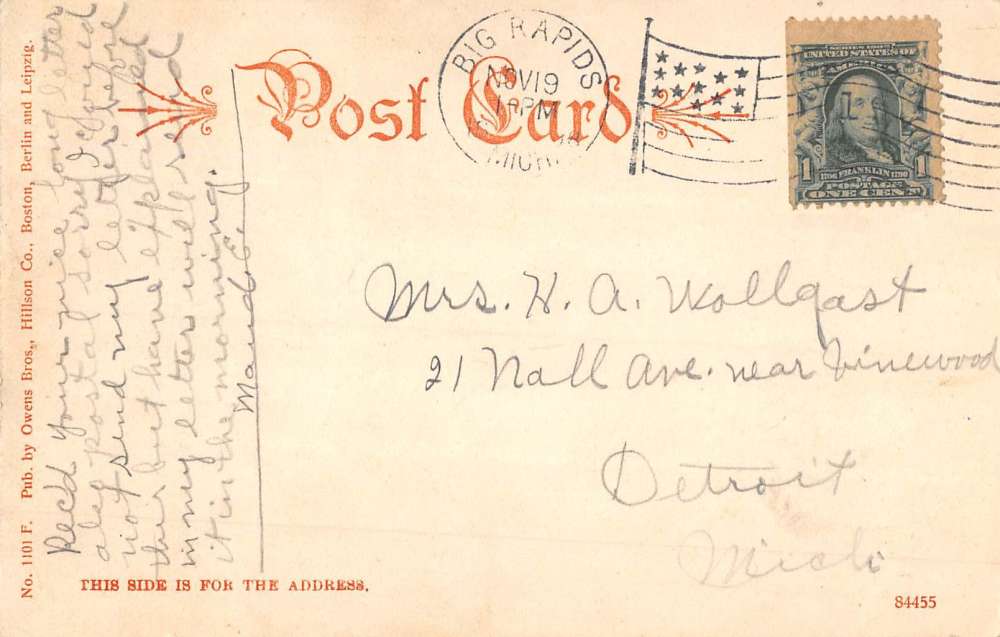 Post Card
BIG RAPIDS
NOV 19
1 PM
MICH.
SERIES 1902
UNITED STATES OF
AMERICA
1 1
1706 FRANKLIN 1790
POSTAGE
ONE CENT
Mrs. H. A. Wollgast
21 Nall Ave. near Vinewood
Detroit
Mich
Recd your nice long letter
also postal sorry I could
not send my letter before
this but have
in my letter will send
it in the morning.
Maud E.
No. 1101 F. Pub. by Owens Bros., Hillson Co., Boston, Berlin and Leipzig.
THIS SIDE IS FOR THE ADDRESS.
84455